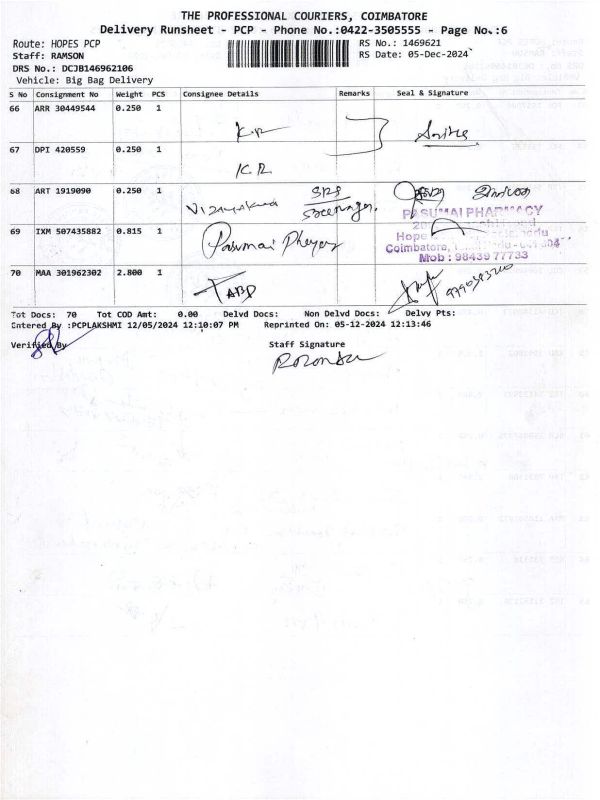 THE PROFESSIONAL COURIERS, COIMBATORE
Delivery Runsheet - PCP - Phone No.:0422-3505555 - Page No.:6
Route: HOPES PCP
RS No.: 1469621
Staff: RAMSON
RS Date: 05-Dec-2024
DRS No.: DCJB146962106
Vehicle: Big Bag Delivery
S No Consignment No Weight PCS Consignee Details Remarks Seal & Signature
66 ARR 30449544 0.250 1 K.R
67 DPI 420559 0.250 1 K.R
68 ART 1919090 0.250 1 SRS
69 IXM 507435882 0.815 1 Pasumai
PASUMAI PHARMACY
Hope
Coimbatore,
Mob : 98439 77733
70 MAA 301962302 2.800 1
Tot Docs: 70 Tot COD Amt: 0.00 Delvd Docs: Non Delvd Docs: Delvy Pts:
Entered By :PCPLAKSHMI 12/05/2024 12:10:07 PM Reprinted On: 05-12-2024 12:13:46
Verified By Staff Signature